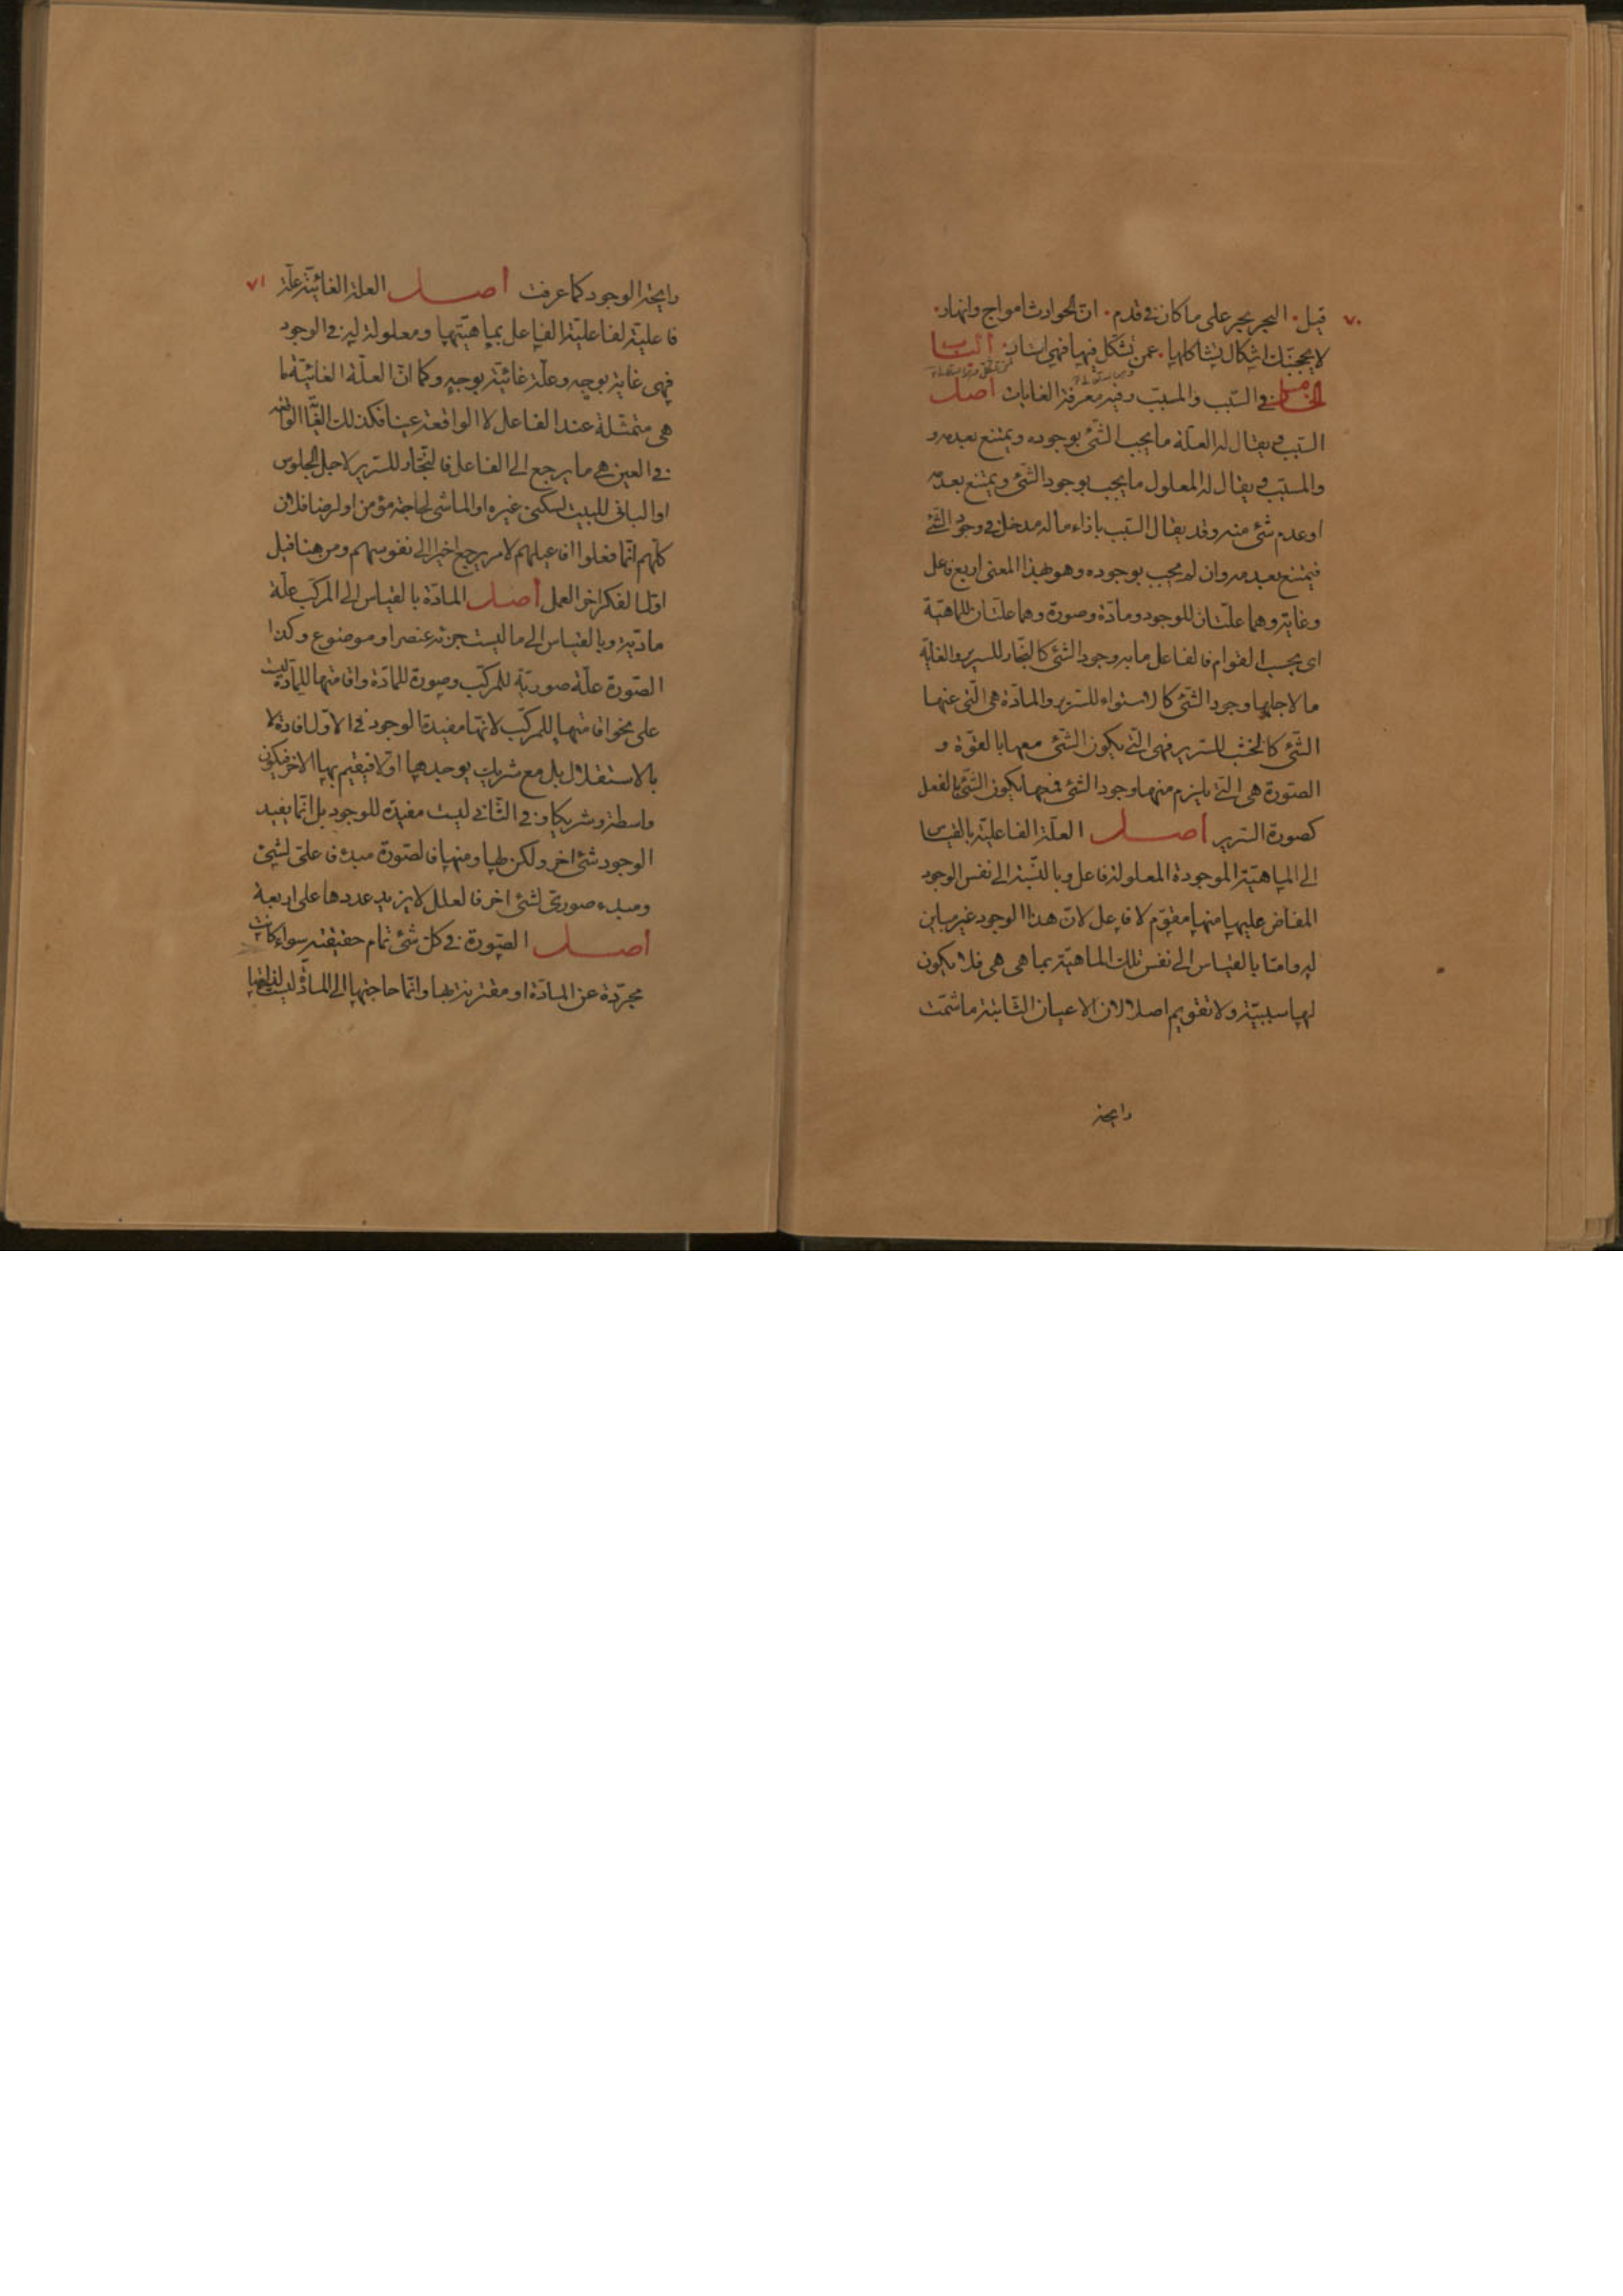 ٧٠
قيل • البحر بحر على ما كان في قدم • ان الحوادث امواج وانهار •
لا يحجبنك اشكال يشاكلها • عمن تشكل فيها فهي استار • الباب
الخامس في السبب والمسبب وفيه معرفة الغايات اصل
السبب يقال له العلة ما يجب الشئ بوجوده ويمتنع بعدمه و
والمسبب يقال له المعلول ما يجب بوجود الشئ ويمتنع بعدمه
او عدم شئ منه وقد يقال السبب بازاء ما له مدخل في وجود الشئ
فيمتنع بعدمه وان لم يجب بوجوده وهو بهذا المعنى اربع فاعل
وغاية وهما علتان للوجود ومادة وصورة وهما علتان للماهية
اى بحسب القوام فالفاعل ما به وجود الشئ كالنجار للسرير والغاية
ما لاجلها وجود الشئ كالاستواء للسرير والمادة هى التى عنها
الشئ كالخشب للسرير فهى التى يكون الشئ معها بالقوة و
الصورة هى التى يلزم منها وجود الشئ فمعها يكون الشئ بالفعل
كصورة السرير اصل العلة الفاعلية بالقياس
الى الماهية الموجودة المعلولة فاعل وبالنسبة الى نفس الوجود
المفاض عليها منها مقوم لا فاعل لان هذا الوجود غير مباين
له واما بالقياس الى نفس تلك الماهية بما هى هى فلا يكون
لها سببية ولا تقويم اصلا لان الاعيان الثابتة ما شمت
رايحة
٧١
رايحة الوجود كما عرفت اصل العلة الغائية علة
فاعلية لفاعلية الفاعل بماهيتها ومعلولة له في الوجود
فهى غاية بوجه وعلة غائية بوجه وكما ان العلة الغائية ما
هى متمثلة عند الفاعل لا الواقعة عينا فكذلك الغاية الواقعة
في العين هى ما يرجع الى الفاعل فالنجار للسرير لاجل الجلوس
او البانى للبيت لسكنى غيره او الماشى لحاجة مؤمن او لرضا فلان
كلهم انما فعلوا افاعيلهم لامر يرجع اخيرا الى نفوسهم ومن هنا قيل
اول الفكر اخر العمل اصل المادة بالقياس الى المركب علة
مادية وبالقياس الى ما ليست جزئه عنصر او موضوع وكذا
الصورة علة صورية للمركب وصورة للمادة واقامتها للمادة ليست
على نحو اقامتها للمركب لانها مفيدة الوجود في الاول افادة لا
بالاستقلال بل مع شريك يوجدها اولا فيقيم بها الاخر فيكون
واسطة وشريكا وفي الثانى ليست مفيدة للوجود بل انما يفيد
الوجود شئ اخر ولكن بها ومنها فالصورة مبدء فاعلى لشئ
ومبدء صورى لشئ اخر فالعلل لا يزيد عددها على اربعة
اصل الصورة في كل شئ تمام حقيقته سواء كانت
مجردة عن المادة او مقترنة بها وانما حاجتها الى المادة ليست لذاتها